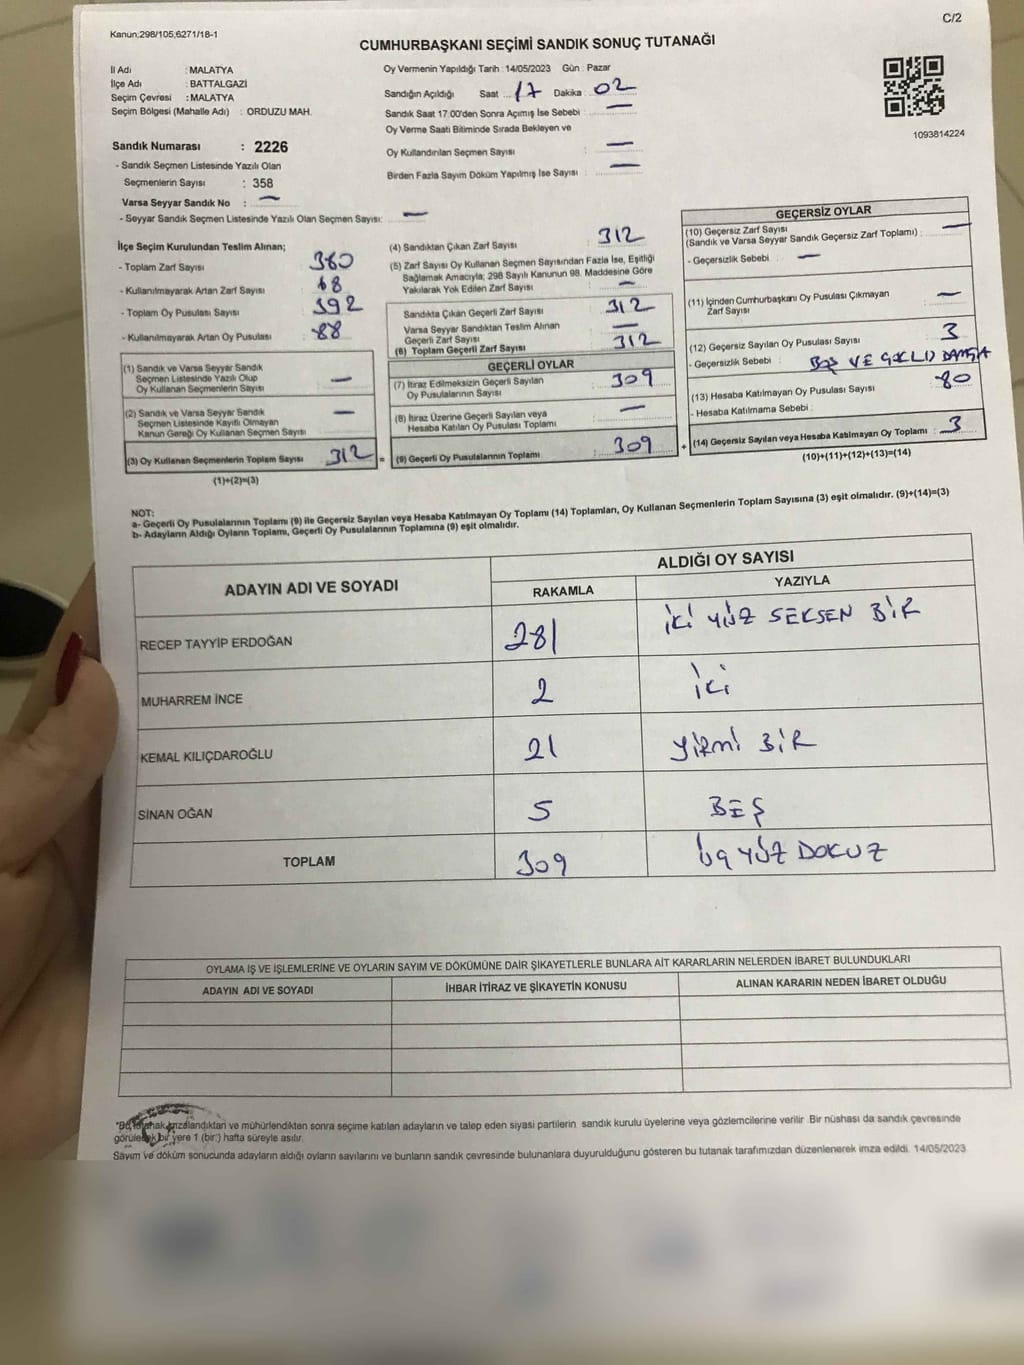 C/2
Kanun;298/105;6271/18-1
CUMHURBAŞKANI SEÇİMİ SANDIK SONUÇ TUTANAĞI
İl Adı : MALATYA
İlçe Adı : BATTALGAZİ
Seçim Çevresi : MALATYA
Seçim Bölgesi (Mahalle Adı) : ORDUZU MAH.
Sandık Numarası : 2226
- Sandık Seçmen Listesinde Yazılı Olan
Seçmenlerin Sayısı : 358
Varsa Seyyar Sandık No : —
- Seyyar Sandık Seçmen Listesinde Yazılı Olan Seçmen Sayısı: —
Oy Vermenin Yapıldığı Tarih : 14/05/2023 Gün : Pazar
Sandığın Açıldığı Saat 17 Dakika 02
Sandık Saat 17.00'den Sonra Açımış İse Sebebi : —
Oy Verme Saati Bitiminde Sırada Bekleyen ve
Oy Kullandırılan Seçmen Sayısı —
Birden Fazla Sayım Döküm Yapılmış İse Sayısı : —
1093814224
İlçe Seçim Kurulundan Teslim Alınan;
- Toplam Zarf Sayısı 380
- Kullanılmayarak Artan Zarf Sayısı 68
- Toplam Oy Pusulası Sayısı 392
- Kullanılmayarak Artan Oy Pusulası : 88
(1) Sandık ve Varsa Seyyar Sandık
Seçmen Listesinde Yazılı Olup
Oy Kullanan Seçmenlerin Sayısı —
(2) Sandık ve Varsa Seyyar Sandık
Seçmen Listesinde Kayıtlı Olmayan
Kanun Gereği Oy Kullanan Seçmen Sayısı —
(3) Oy Kullanan Seçmenlerin Toplam Sayısı 312 =
(1)+(2)=(3)
(4) Sandıktan Çıkan Zarf Sayısı 312
(5) Zarf Sayısı Oy Kullanan Seçmen Sayısından Fazla İse, Eşitliği
Sağlamak Amacıyla; 298 Sayılı Kanunun 98. Maddesine Göre
Yakılarak Yok Edilen Zarf Sayısı —
Sandıkta Çıkan Geçerli Zarf Sayısı 312
Varsa Seyyar Sandıktan Teslim Alınan
Geçerli Zarf Sayısı —
(6) Toplam Geçerli Zarf Sayısı 312
GEÇERLİ OYLAR
(7) İtiraz Edilmeksizin Geçerli Sayılan
Oy Pusulalarının Sayısı 309
(8) İtiraz Üzerine Geçerli Sayılan veya
Hesaba Katılan Oy Pusulası Toplamı —
(9) Geçerli Oy Pusulalarının Toplamı : 309 +
GEÇERSİZ OYLAR
(10) Geçersiz Zarf Sayısı
(Sandık ve Varsa Seyyar Sandık Geçersiz Zarf Toplamı) : —
- Geçersizlik Sebebi : —
(11) İçinden Cumhurbaşkanı Oy Pusulası Çıkmayan
Zarf Sayısı —
(12) Geçersiz Sayılan Oy Pusulası Sayısı 3
- Geçersizlik Sebebi : BOŞ VE
(13) Hesaba Katılmayan Oy Pusulası Sayısı 80
- Hesaba Katılmama Sebebi :
(14) Geçersiz Sayılan veya Hesaba Katılmayan Oy Toplamı : 3
(10)+(11)+(12)+(13)=(14)
NOT:
a- Geçerli Oy Pusulalarının Toplamı (9) ile Geçersiz Sayılan veya Hesaba Katılmayan Oy Toplamı (14) Toplamları, Oy Kullanan Seçmenlerin Toplam Sayısına (3) eşit olmalıdır. (9)+(14)=(3)
b- Adayların Aldığı Oyların Toplamı, Geçerli Oy Pusulalarının Toplamına (9) eşit olmalıdır.
ADAYIN ADI VE SOYADI ALDIĞI OY SAYISI
RAKAMLA YAZIYLA
RECEP TAYYİP ERDOĞAN 281 İKİ YÜZ SEKSEN BİR
MUHARREM İNCE 2 İKİ
KEMAL KILIÇDAROĞLU 21 YİRMİ BİR
SİNAN OĞAN 5 BEŞ
TOPLAM 309 ÜÇ YÜZ DOKUZ
OYLAMA İŞ VE İŞLEMLERİNE VE OYLARIN SAYIM VE DÖKÜMÜNE DAİR ŞİKAYETLERLE BUNLARA AİT KARARLARIN NELERDEN İBARET BULUNDUKLARI
ADAYIN ADI VE SOYADI İHBAR İTİRAZ VE ŞİKAYETİN KONUSU ALINAN KARARIN NEDEN İBARET OLDUĞU
*Bu tutanak imzalandıktan ve mühürlendikten sonra seçime katılan adayların ve talep eden siyasi partilerin sandık kurulu üyelerine veya gözlemcilerine verilir. Bir nüshası da sandık çevresinde
görülecek bir yere 1 (bir) hafta süreyle asılır.
Sayım ve döküm sonucunda adayların aldığı oyların sayılarını ve bunların sandık çevresinde bulunanlara duyurulduğunu gösteren bu tutanak tarafımızdan düzenlenerek imza edildi. 14/05/2023